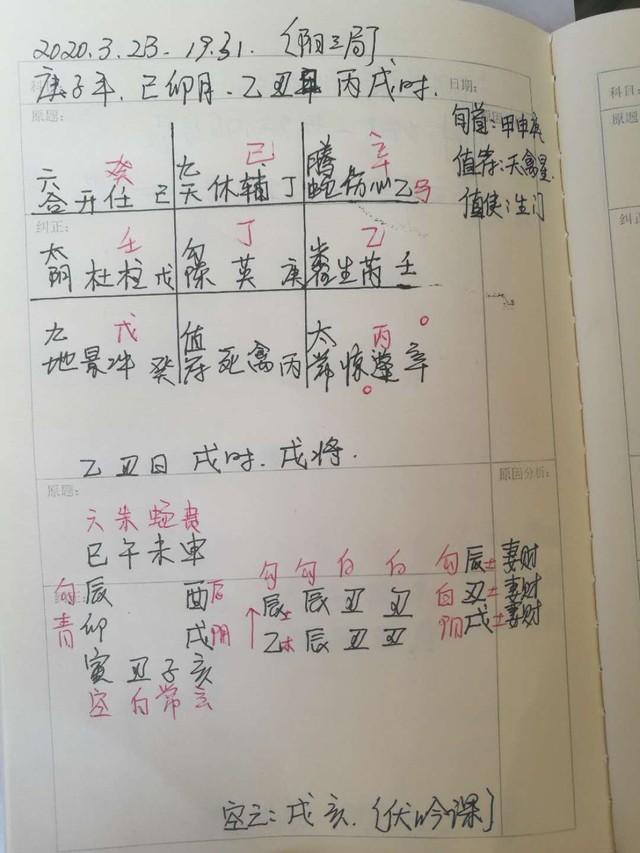 2020.3.23. 19.31. (阳三局)
庚子年.己卯月.乙丑 丙戌时.
日期：
科目：
原题：
旬首：甲申庚
癸 己 辛
六合开任己 九天休辅丁 腾蛇伤心乙马
值符：天禽星
值使：生门
纠正：
壬 丁 乙
太阴杜柱戊 勾陈英庚 生芮壬
戊 丙
九地景冲癸 值符死禽丙 太常惊蓬辛
乙丑日 戌时.戌将.
原题：
原因分析：
六朱蛇贵
巳午未申
勾辰 酉后
青卯 戌阴
寅丑子亥
空白常玄
勾勾白白
辰土辰丑丑
乙木辰丑丑
勾辰土妻财
白丑土妻财
阴戌土妻财
空亡：戌亥.(伏吟课)
原题
纠正